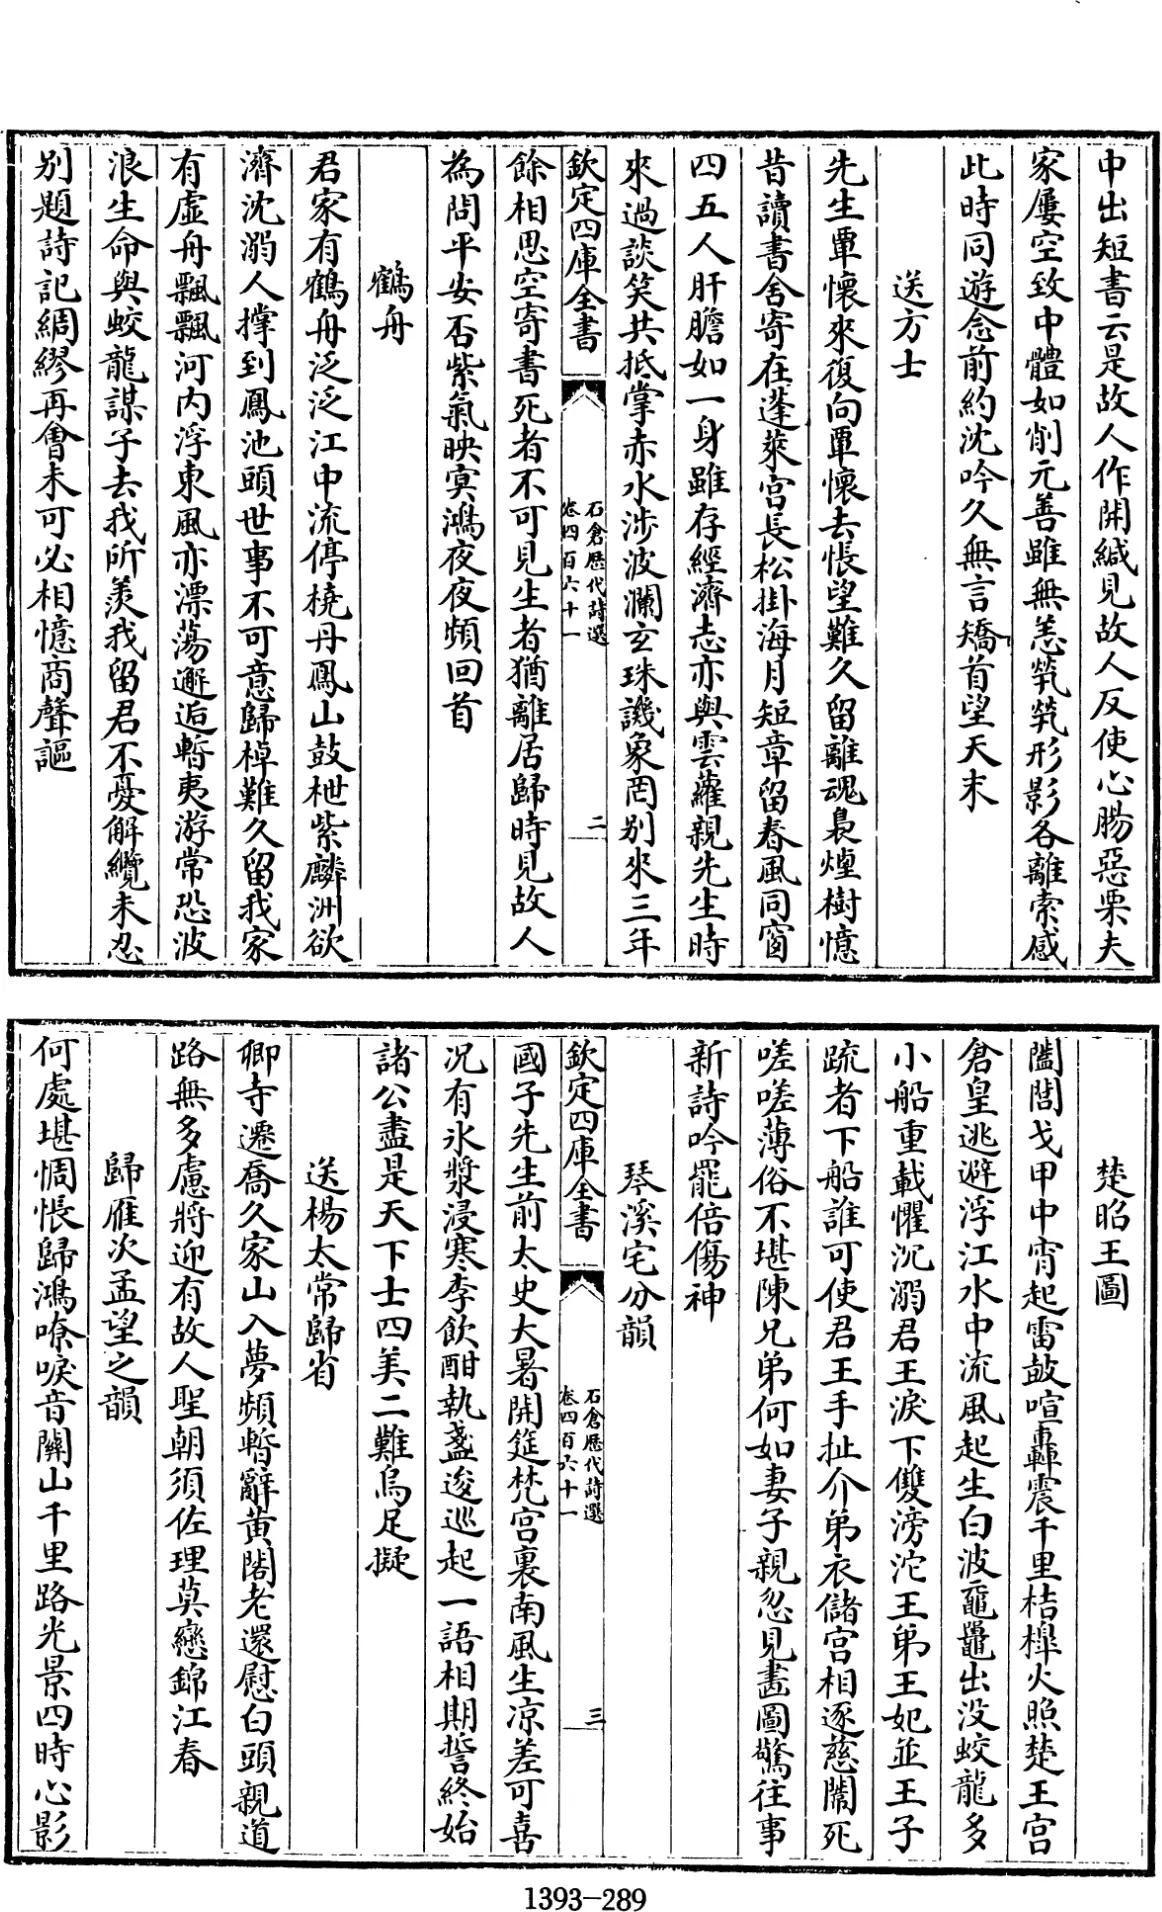 中出短書云是故人作開緘見故人反使心腸惡栗夫
家屢空致中體如削元善雖無恙煢煢形影各離索感
此時同遊念前約沈吟久無言矯首望天末
送方士
先生覃懷來復向覃懷去悵望難久留離魂裊煙樹憶
昔讀書舍寄在蓬萊宮長松掛海月短章留春風同窗
四五人肝膽如一身雖存經濟志亦與雲蘿親先生時
來過談笑共抵掌赤水涉波瀾玄珠譏象罔别來三年
欽定四庫全書
石倉歷代詩選
卷四百六十一
二
餘相思空寄書死者不可見生者猶離居歸時見故人
為問平安否紫氣映冥鴻夜夜頻回首
鶴舟
君家有鶴舟泛泛江中流停橈丹鳳山鼓枻紫麟洲欲
濟沈溺人撑到鳳池頭世事不可意歸棹難久留我家
有虛舟飄飄河内浮東風亦漂蕩邂逅暫夷游常恐波
浪生命與蛟龍謀子去我所羨我留君不憂解纜未忍
别題詩記綢繆再會未可必相憶商聲謳
楚昭王圖
闔閭戈甲中宵起雷鼓喧轟震千里桔槹火照楚王宮
倉皇逃避浮江水中流風起生白波黿鼉出没蛟龍多
小船重載懼沉溺君王淚下雙滂沱王弟王妃並王子
疏者下船誰可使君王手扯介弟衣儲宮相逐慈闈死
嗟嗟薄俗不堪陳兄弟何如妻子親忽見畫圖驚往事
新詩吟罷倍傷神
琴溪宅分韻
欽定四庫全書
石倉歷代詩選
卷四百六十一
三
國子先生前太史大暑開筵梵宮裏南風生凉差可喜
况有氷漿浸寒李飲酣執盞逡巡起一語相期誓終始
諸公盡是天下士四美二難烏足擬
送楊太常歸省
卿寺遷喬久家山入夢頻暫辭黄閣老還慰白頭親道
路無多慮將迎有故人聖朝須佐理莫戀錦江春
歸雁次孟望之韻
何處堪惆悵歸鴻嘹唳音關山千里路光景四時心影
1393-289